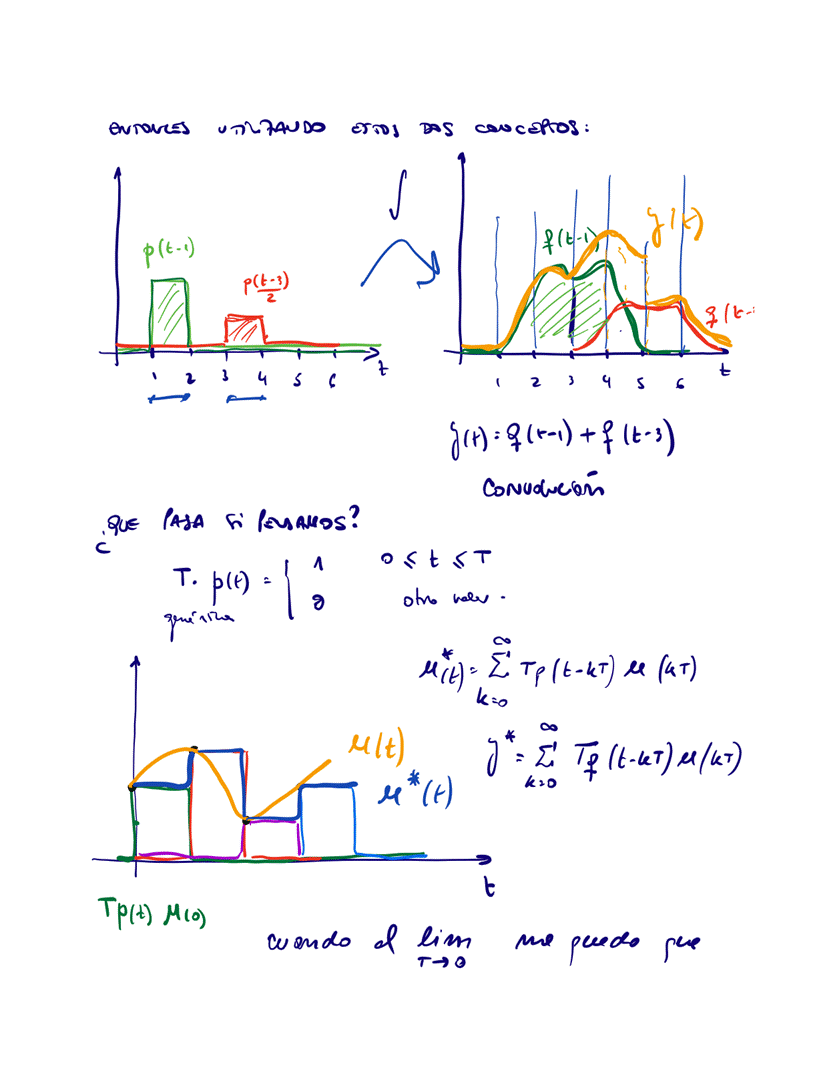 ENTONCES UTILIZANDO ESTOS DOS CONCEPTOS:
∫
p(t-1)
p(t-3)/2
1 2 3 4 5 6 t
q(t-1)
y(t)
q(t-
1 2 3 4 5 6 t
y(t) = q(t-1) + q(t-3)
CONVOLUCIÓN
¿QUE PASA SI PENSAMOS?
T. p(t) = { 1 0 ≤ t ≤ T
0 otro valor.
genérica
u*(t) = Σ k=0 ∞ Tp(t-kT) u(kT)
y* = Σ k=0 ∞ Tq(t-kT) u(kT)
u(t)
u*(t)
t
Tp(t) u(0)
cuando el lim T→0 me puedo que